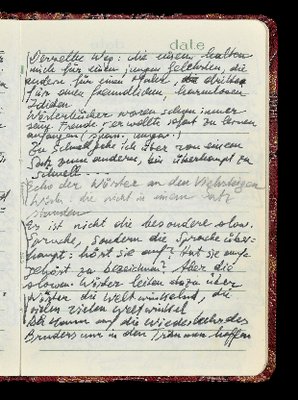 date
Derselbe Weg: die einen halten
mich für einen jungen Gelehrten, die
andern für einen die dritten
für einen freundlichen, harmlosen
Idioten
Wörterbücher waren schon immer
seine Freude: er wollte sofort zu lernen
anfangen
Zu schnell gehe ich über von einem
Satz zum andern, bin überhaupt zu
schnell
Echo der Wörter an den
Wörter, die nicht in einem Satz
standen
Es ist nicht die besondere slow.
Sprache, sondern die Sprache über-
haupt: hört sie auf? hat sie aufge-
hört zu bezeichnen? Aber die
slowen. Wörter leiten dazu über
Wörter die Welt, die
vielen vielen Weltwinkel
auf die Wiederkehr des
Bruders nur in den Träumen hoffen